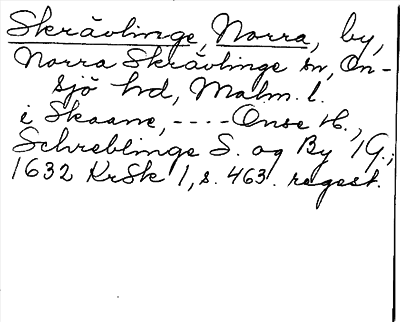 Skrävlinge, Norra, by,
Norra Skrävlinge sn, On-
sjö hd, Malm. l.
i Skaane, ---- Onse H.,
Schreblinge S. og By 1 G.;
1632 KrSk 1, s. 463. regest.